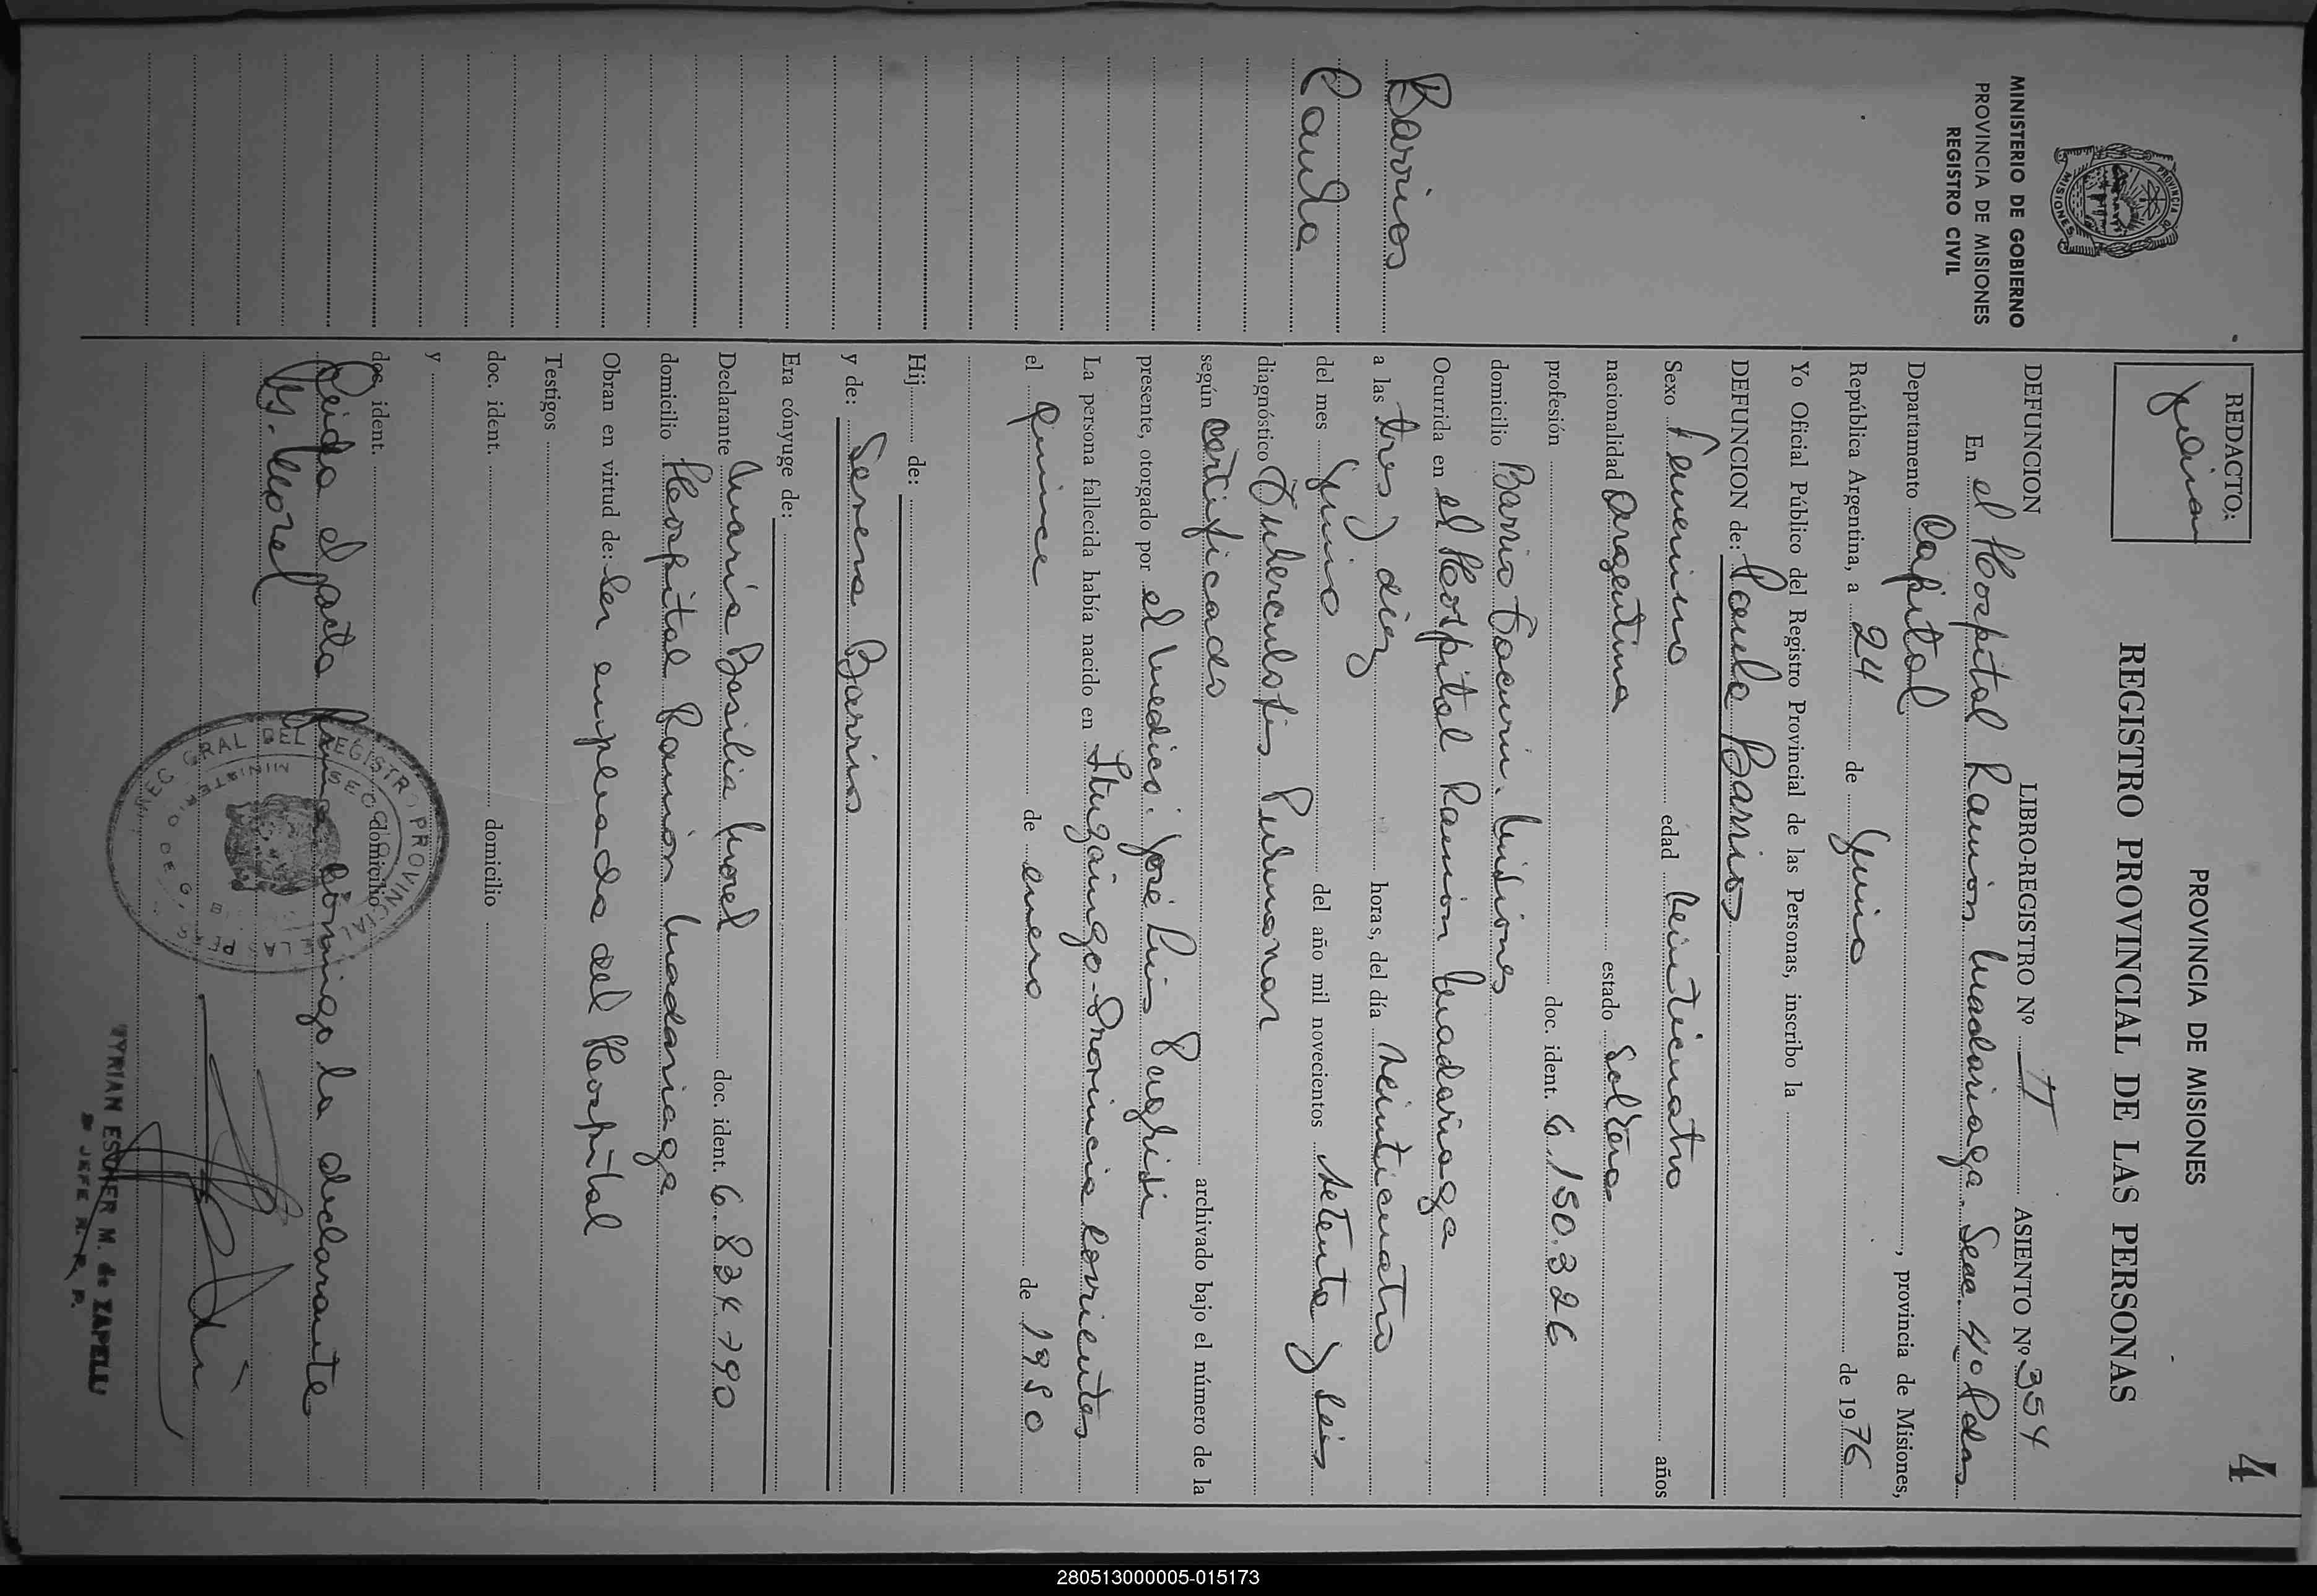 4
PROVINCIA DE MISIONES
REGISTRO PROVINCIAL DE LAS PERSONAS
REDACTO:
MINISTERIO DE GOBIERNO
PROVINCIA DE MISIONES
REGISTRO CIVIL
PROVINCIA
MISIONES
Barrios
Paula
DEFUNCION LIBRO-REGISTRO Nº ASIENTO Nº 354
En el Hospital Ramón Madariaga. Secc. 4º Pdas
Departamento Capital, provincia de Misiones,
República Argentina, a 24 de Junio de 1976
Yo Oficial Público del Registro Provincial de las Personas, inscribo la
DEFUNCION de: Paula Barrios
Sexo Femenino edad Veinticuatro años
nacionalidad Argentina estado Soltera
profesión doc. ident. 6.150.326
domicilio Barrio Tacurú. Misiones
Ocurrida en el Hospital Ramón Madariaga
a las tres y diez horas, del día Veinticuatro
del mes Junio del año mil novecientos setenta y seis
diagnóstico Tuberculosis Pulmonar
según certificado archivado bajo el número de la
presente, otorgado por el Medico: José Luis Puglisi
La persona fallecida había nacido en Ituzaingo-Provincia Corrientes
el quince de enero de 1950
Hij de:
y de: Serena Barrios
Era cónyuge de:
Declarante María Basilia Morel doc. ident. 6.834.790
domicilio Hospital Ramón Madariaga
Obran en virtud de: Ser empleada del Hospital
Testigos
doc. ident. domicilio
y
doc. ident. domicilio
Leida el acta firma conmigo la declarante
Morel
REGISTRO PROVINCIAL
ESTHER M. de ZAPELLI
JEFE R. P. P.
280513000005-015173